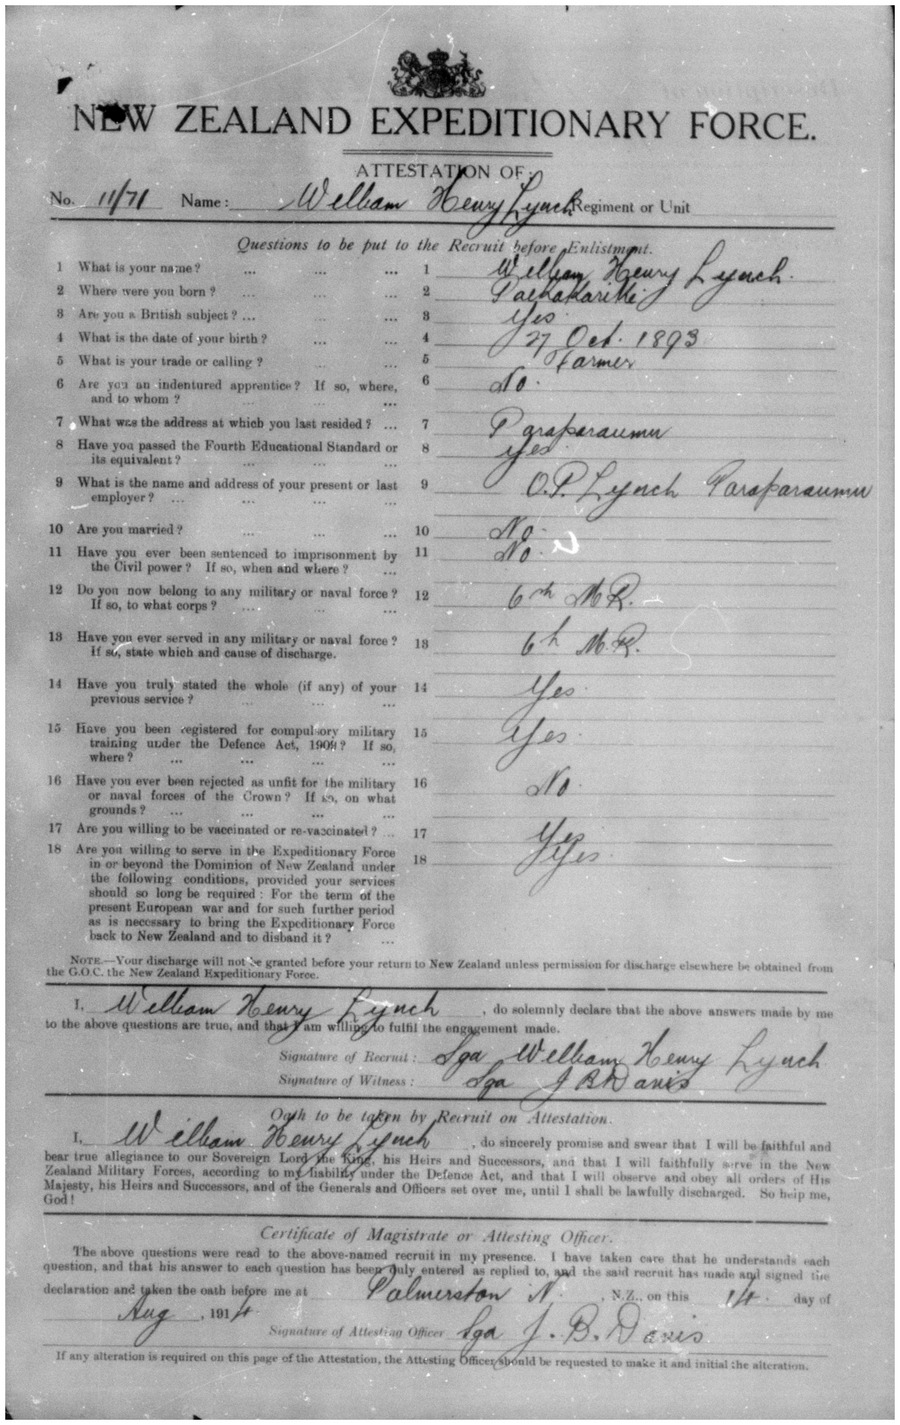 NEW ZEALAND EXPEDITIONARY FORCE.
ATTESTATION OF:
No. 11/71 Name: William Henry Lynch Regiment or Unit
Questions to be put to the Recruit before Enlistment.
1 What is your name? ... ... ... 1 William Henry Lynch.
2 Where were you born? ... ... ... 2 Paekakariki
3 Are you a British subject? ... ... ... 3 Yes.
4 What is the date of your birth? ... ... 4 27 Oct. 1893
5 What is your trade or calling? ... ... 5 Farmer
6 Are you an indentured apprentice? If so, where, 6 No.
and to whom? ... ... ...
7 What was the address at which you last resided? ... 7 Paraparaumu
8 Have you passed the Fourth Educational Standard or 8 yes.
its equivalent? ... ... ...
9 What is the name and address of your present or last 9 O.P. Lynch Paraparaumu
employer? ... ... ... ...
10 Are you married? ... ... ... 10 No.
11 Have you ever been sentenced to imprisonment by 11 No.
the Civil power? If so, when and where? ...
12 Do you now belong to any military or naval force? 12 6th M.R.
If so, to what corps? ... ... ...
13 Have you ever served in any military or naval force? 13 6th M.R.
If so, state which and cause of discharge.
14 Have you truly stated the whole (if any) of your 14 Yes.
previous service? ... ... ...
15 Have you been registered for compulsory military 15 Yes.
training under the Defence Act, 1909? If so,
where? ... ... ... ...
16 Have you ever been rejected as unfit for the military 16 No.
or naval forces of the Crown? If so, on what
grounds? ... ... ... ...
17 Are you willing to be vaccinated or re-vaccinated? ... 17 Yes
18 Are you willing to serve in the Expeditionary Force 18 Yes.
in or beyond the Dominion of New Zealand under
the following conditions, provided your services
should so long be required: For the term of the
present European war and for such further period
as is necessary to bring the Expeditionary Force
back to New Zealand and to disband it? ...
NOTE.—Your discharge will not be granted before your return to New Zealand unless permission for discharge elsewhere be obtained from
the G.O.C. the New Zealand Expeditionary Force.
I, William Henry Lynch, do solemnly declare that the above answers made by me
to the above questions are true, and that I am willing to fulfil the engagement made.
Signature of Recruit: Sgd William Henry Lynch
Signature of Witness: Sgd J B Davis
Oath to be taken by Recruit on Attestation.
I, William Henry Lynch, do sincerely promise and swear that I will be faithful and
bear true allegiance to our Sovereign Lord the King, his Heirs and Successors, and that I will faithfully serve in the New
Zealand Military Forces, according to my liability under the Defence Act, and that I will observe and obey all orders of His
Majesty, his Heirs and Successors, and of the Generals and Officers set over me, until I shall be lawfully discharged. So help me,
God!
Certificate of Magistrate or Attesting Officer.
The above questions were read to the above-named recruit in my presence. I have taken care that he understands each
question, and that his answer to each question has been duly entered as replied to, and the said recruit has made and signed the
declaration and taken the oath before me at Palmerston N., N.Z., on this 14. day of
Aug, 1914
Signature of Attesting Officer Sgd J. B. Davis
If any alteration is required on this page of the Attestation, the Attesting Officer should be requested to make it and initial the alteration.